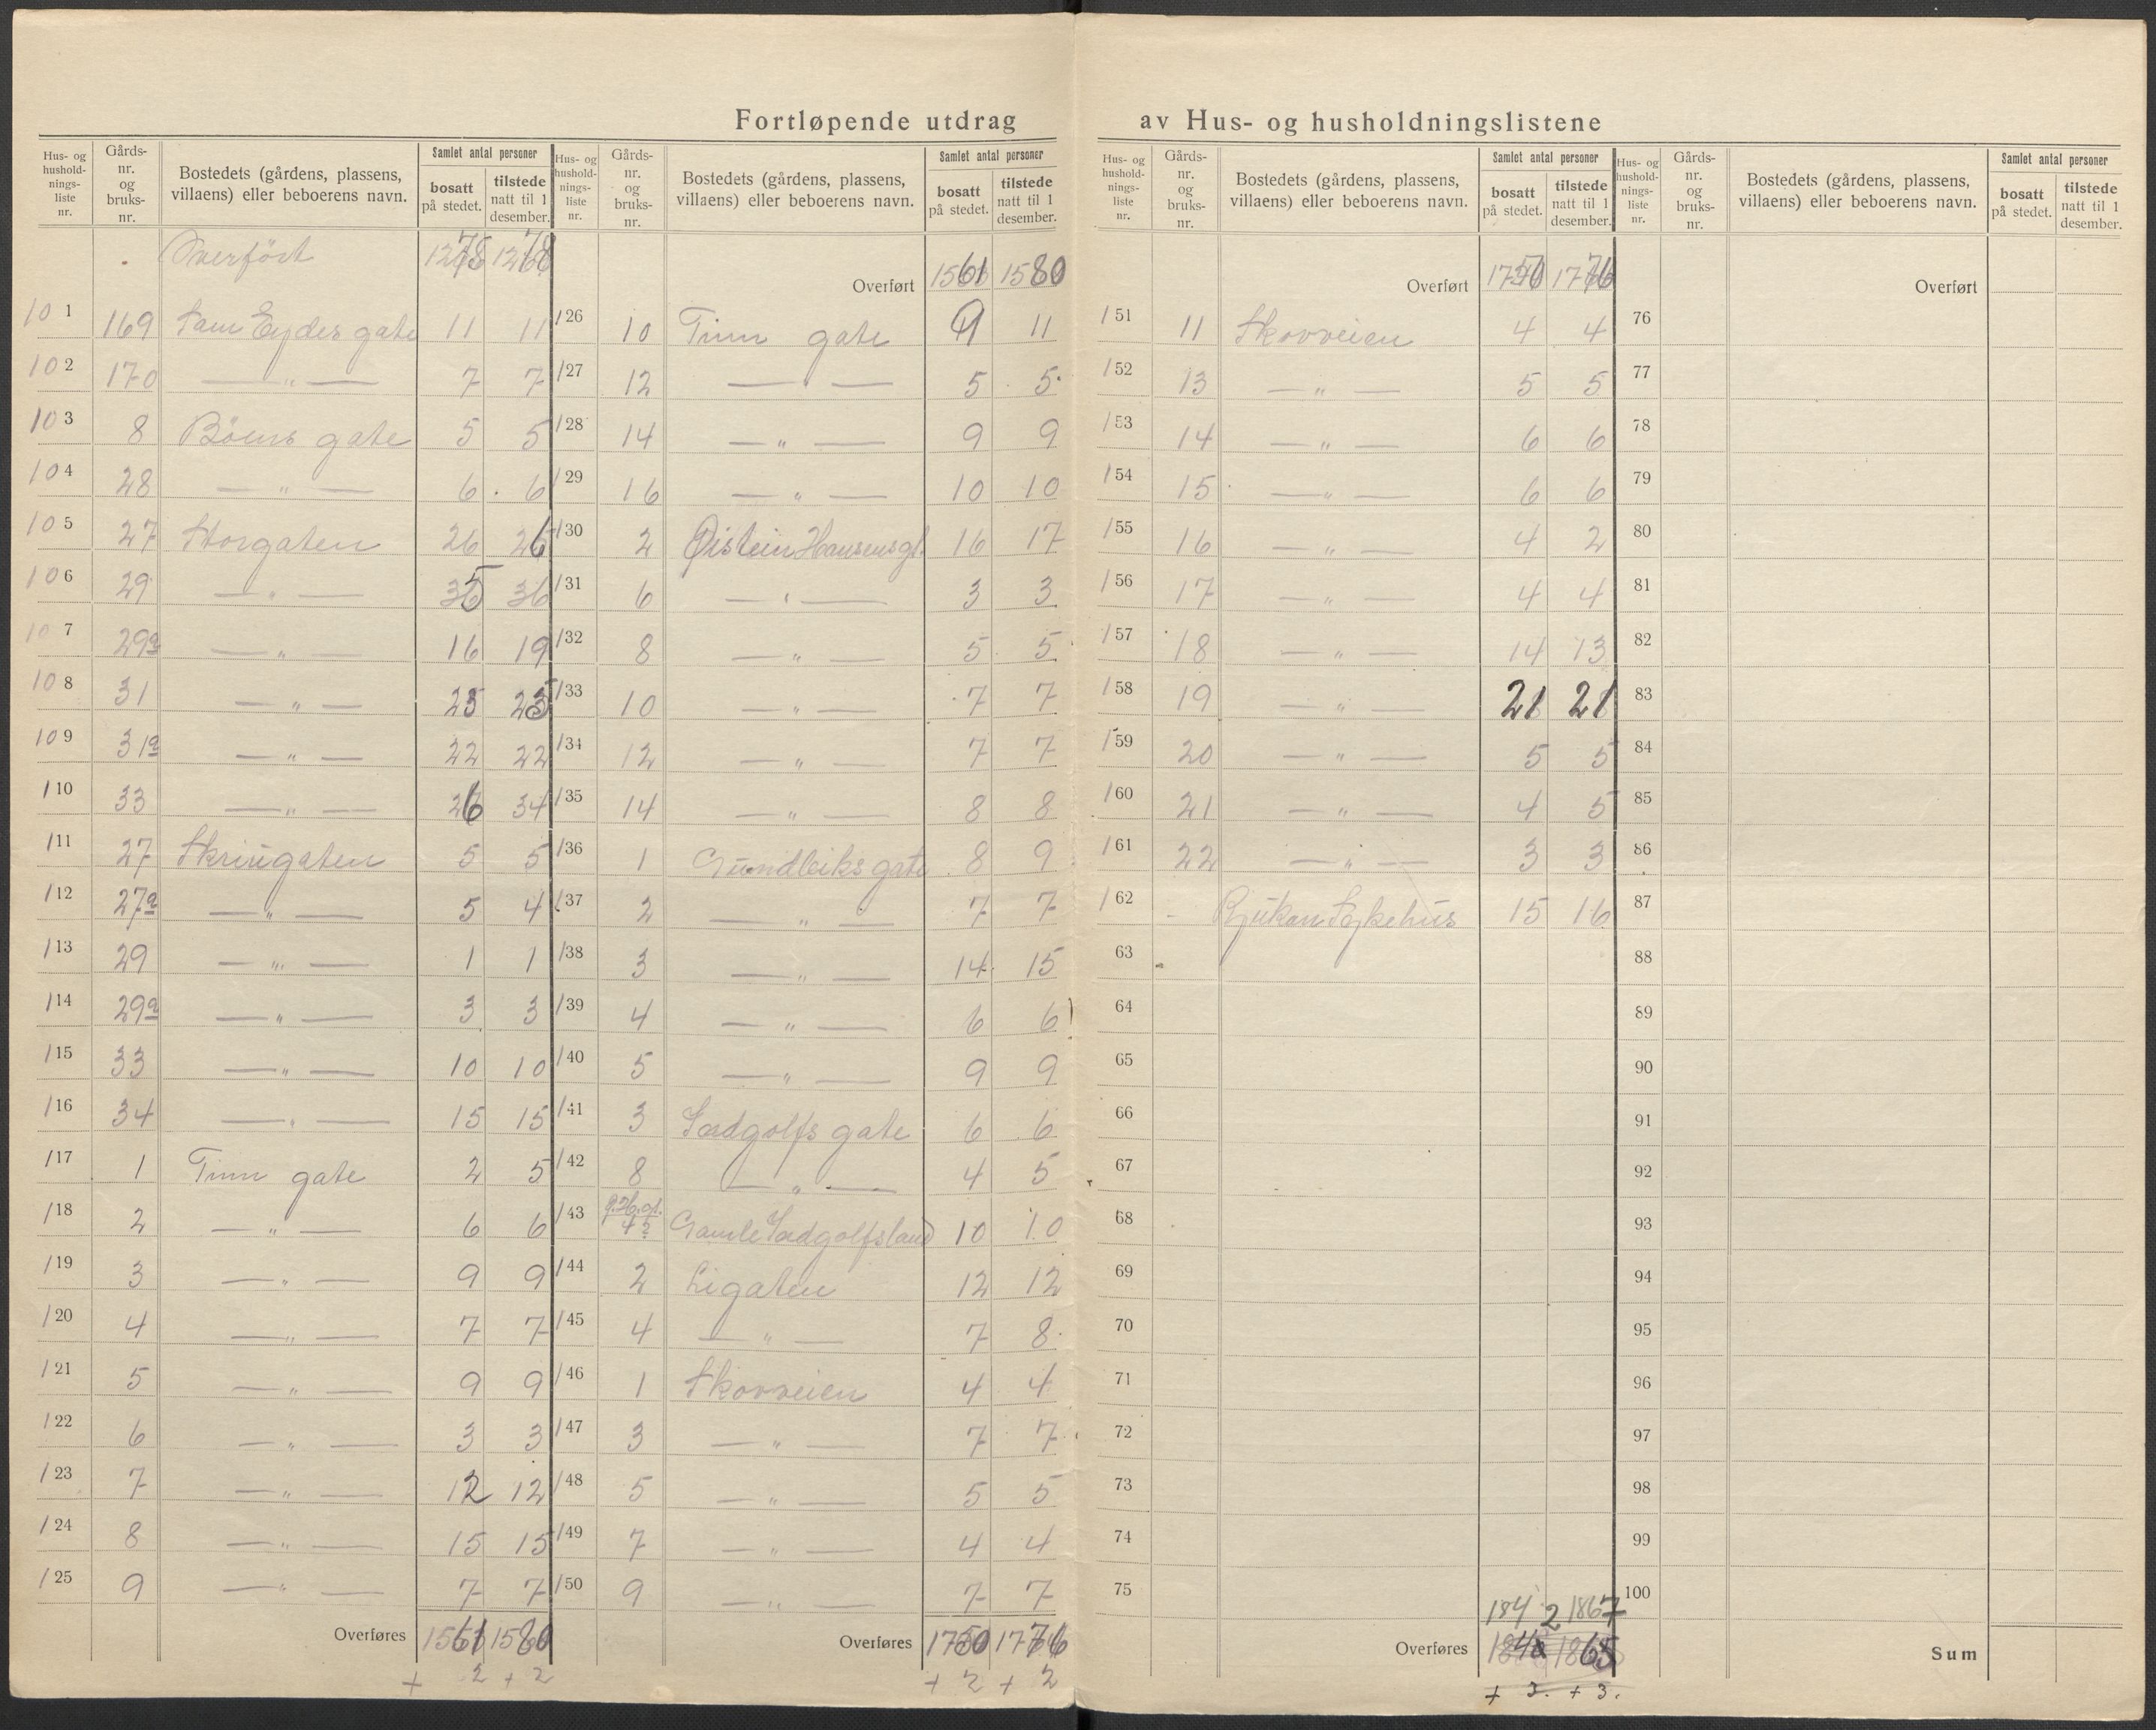 Fortløpende utdrag av Hus- og husholdningslistene
Hus- og hushold-nings-liste nr. Gårds-nr. og bruks-nr. Bostedets (gårdens, plassens, villaens) eller beboerens navn. Samlet antal personer bosatt på stedet. tilstede natt til 1 desember.
Overført 1278 1278
101 169 Sam Eydes gate 11 11
102 170 — " — 7 7
103 8 Bøens gate 5 5
104 28 — " — 6 6
105 27 Storgaten 26 26
106 29 — " — 35 36
107 29a — " — 16 19
108 31 — " — 23 23
109 31a — " — 22 22
110 33 — " — 26 34
111 27 Skriugaten 5 5
112 27a — " — 5 4
113 29 — " — 1 1
114 29a — " — 3 3
115 33 — " — 10 10
116 34 — " — 15 15
117 1 Tinn gate 2 5
118 2 — " — 6 6
119 3 — " — 9 9
120 4 — " — 7 7
121 5 — " — 9 9
122 6 — " — 3 3
123 7 — " — 12 12
124 8 — " — 15 15
125 9 — " — 7 7
Overføres 1561 1580
+ 2 + 2
Hus- og hushold-nings-liste nr. Gårds-nr. og bruks-nr. Bostedets (gårdens, plassens, villaens) eller beboerens navn. Samlet antal personer bosatt på stedet. tilstede natt til 1 desember.
Overført 1561 1580
126 10 Tinn gate 9 11
127 12 — " — 5 5
128 14 — " — 9 9
129 16 — " — 10 10
130 2 Øistein Hansens gt. 16 17
131 6 — " — 3 3
132 8 — " — 5 5
133 10 — " — 7 7
134 12 — " — 7 7
135 14 — " — 8 8
136 1 Gundleiks gate 8 9
137 2 — " — 7 7
138 3 — " — 14 15
139 4 — " — 6 6
140 5 — " — 9 9
141 3 Sadgolfs gate 6 6
142 8 — " — 4 5
143 4a Gamle Sadgolfsland 10 10
144 2 Ligaten 12 12
145 4 — " — 7 8
146 1 Skovveien 4 4
147 3 — " — 7 7
148 5 — " — 5 5
149 7 — " — 4 4
150 9 — " — 7 7
Overføres 1750 1776
+ 2 + 2
Hus- og hushold-nings-liste nr. Gårds-nr. og bruks-nr. Bostedets (gårdens, plassens, villaens) eller beboerens navn. Samlet antal personer bosatt på stedet. tilstede natt til 1 desember.
Overført 1750 1776
151 11 Skovveien 4 4
152 13 — " — 5 5
153 14 — " — 6 6
154 15 — " — 6 6
155 16 — " — 4 2
156 17 — " — 4 4
157 18 — " — 14 13
158 19 — " — 21 21
159 20 — " — 5 5
160 21 — " — 4 5
161 22 — " — 3 3
162 - Rjukan Sykehus 15 16
63
64
65
66
67
68
69
70
71
72
73
74
75
1842 1867
Overføres 1865
+ 3. + 3.
Hus- og hushold-nings-liste nr. Gårds-nr. og bruks-nr. Bostedets (gårdens, plassens, villaens) eller beboerens navn. Samlet antal personer bosatt på stedet. tilstede natt til 1 desember.
Overført
76
77
78
79
80
81
82
83
84
85
86
87
88
89
90
91
92
93
94
95
96
97
98
99
100
Sum